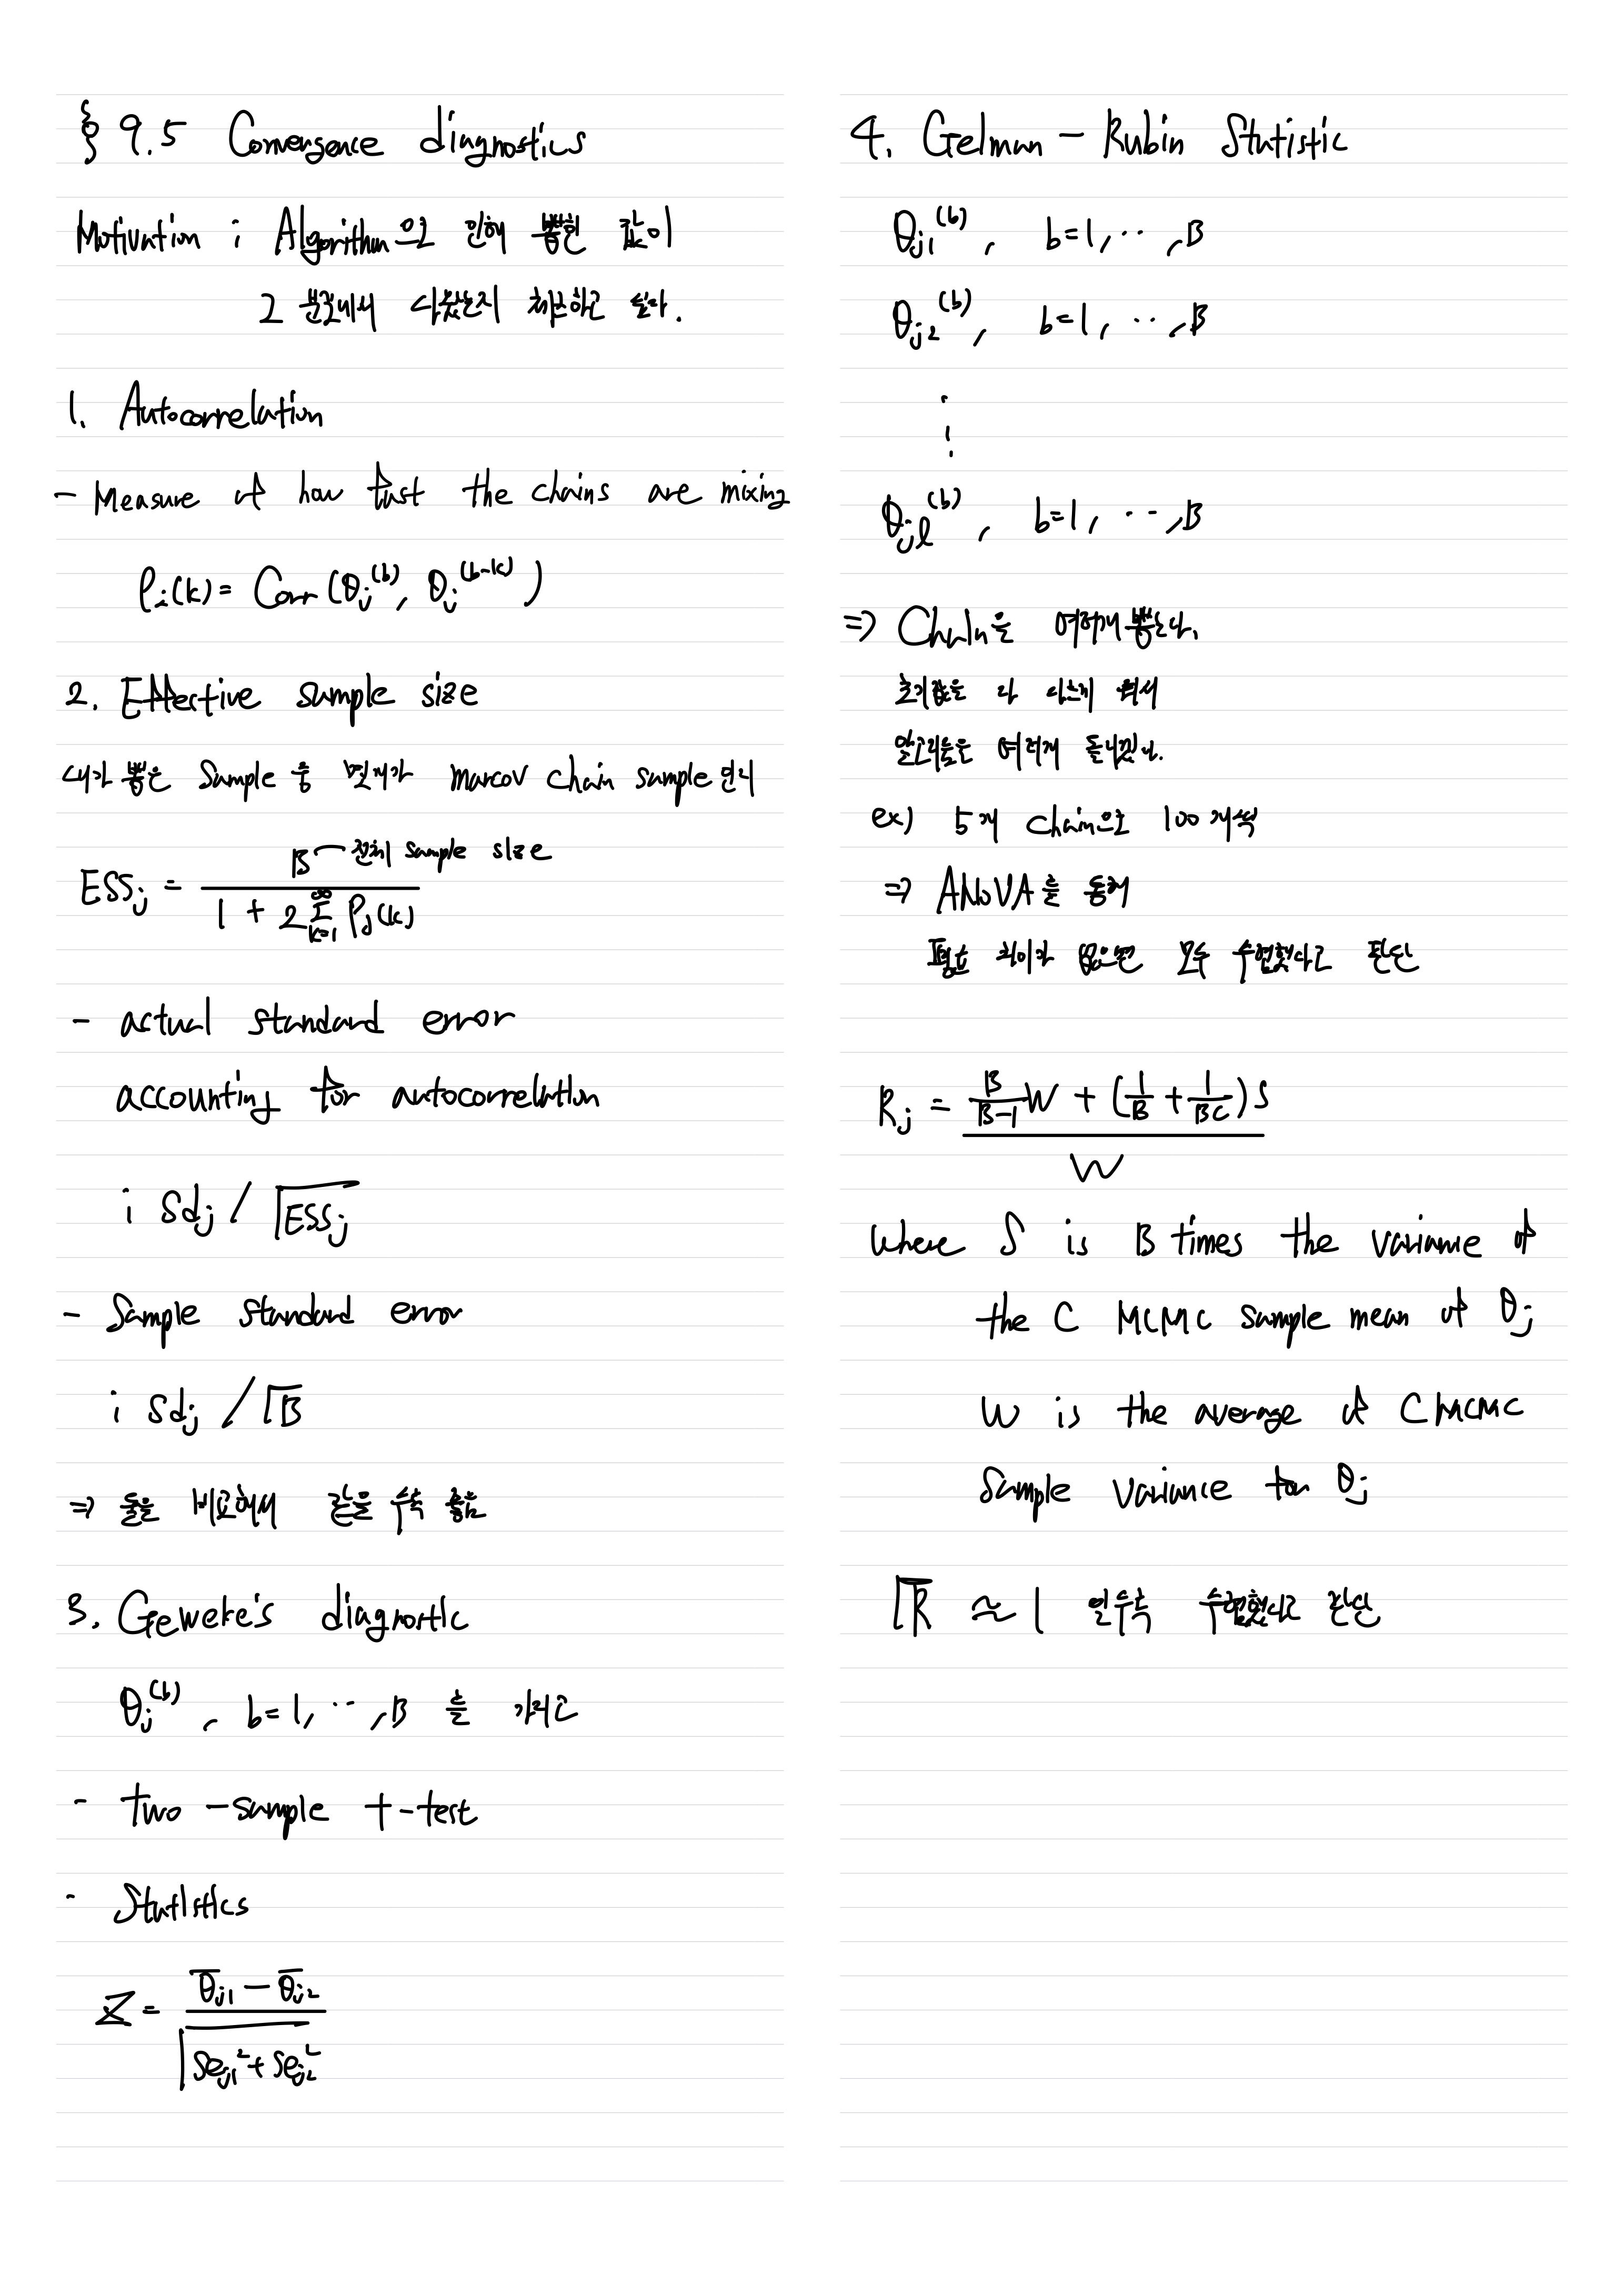 § 9.5 Convergence diagnostics
Motivation : Algorithm으로 인해 뽑힌 값이
그 분포에서 나왔는지 체크하고 싶다.
1. Autocorrelation
- Measure of how fast the chains are mixing
ρ_j(k) = Corr (θ_j^(b), θ_j^(b-k))
2. Effective sample size
내가 뽑은 Sample 중 몇개가 Marcov chain sample인지
ESS_j = B / (1 + 2 Σ_{k=1}^∞ ρ_j(k))
전체 sample size
- actual standard error
accounting for autocorrelation
: sd_j / √ESS_j
- Sample standard error
: sd_j / √B
⇒ 둘을 비교해서 같을수록 좋음
3. Geweke's diagnostic
θ_j^(b), b=1, ··, B 를
- two-sample t-test
- Statistics
Z = (θ̄_j1 - θ̄_j2) / √(se_j1² + se_j2²)
4. Gelman - Rubin Statistic
θ_j1^(b), b=1, ··, B
θ_j2^(b), b=1, ··, B
⋮
θ_jl^(b), b=1, ··, B
⇒ Chain을 여러개 뽑는다.
초기값은 다 다르게 줘서
알고리듬은 여러개
ex) 5개 chain으로 100개씩
⇒ ANOVA를 통해
평균 차이가 없으면 모두 수렴했다고 판단
R_j = (B/(B-1) W + (1/B + 1/BC) S) / W
where S is B times the variance of
the C MCMC sample mean of θ_j
W is the average of C MCMC
Sample variance for θ_j
√R ≈ 1 일수록 수렴했다고 판단